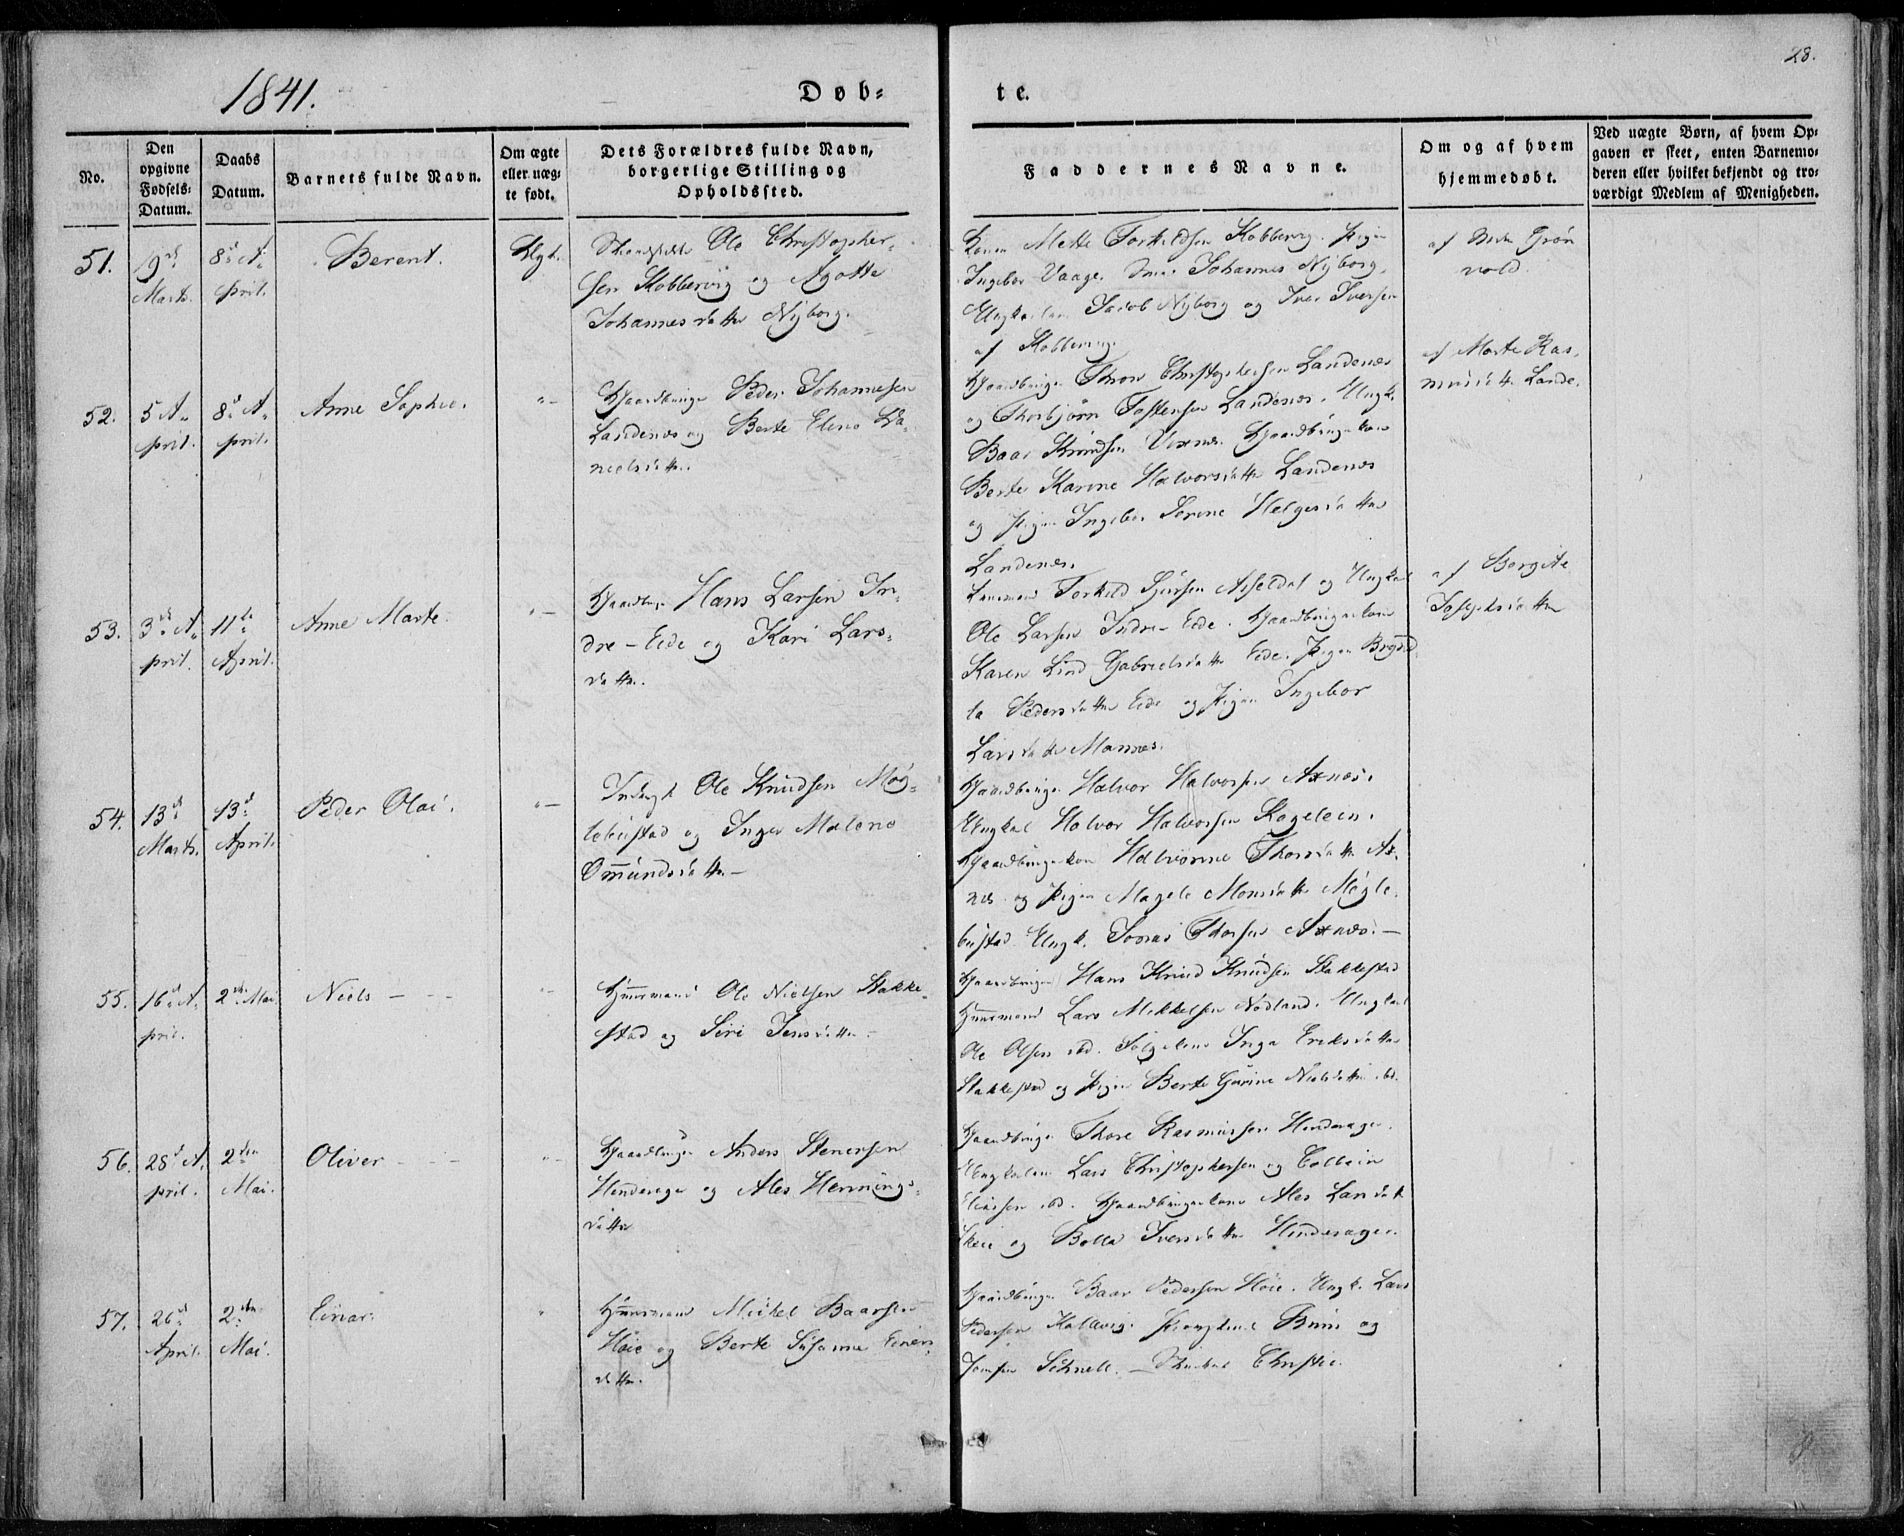 28.
1841.
Døb-
te.
No.
Den opgivne Fødsels-Datum.
Daabs Datum.
Barnets fulde Navn.
Om ægte eller uæg-te født.
Dets Forældres fulde Navn, borgerlige Stilling og Opholdssted.
Faddernes Navne.
Om og af hvem hjemmedøbt.
Ved uægte Børn, af hvem Op-
gaven er skeet, enten Barnemo-
deren eller hvilket bekjendt og tro-
værdigt Medlem af Menigheden.
51.
19de
Marts.
8de A-
pril.
Berent.
Ægt.
Ole Christopher-
sen Kobbervig og Agotte
Johannesdatter Nyborg.
Konen Mette Torkildsen Kobbervig. Pigen
Ingebor Vaage. Johannes Nyborg.
Ungkarlene Jacob Nyborg og Iver Iversen
af Kobbervig.
af Grøn
vold.
52.
5 A-
pril.
8de A-
pril.
Anne Sophie.
"-
Gaardbruger Peder Johannesen
Landenæs og Berte Elene Da-
nielsdatter.
Gaardbruger Thron Christophersen Landenæs
og Thorbjørn Tostensen Landenæs. Ungk.
Baar Knudsen Gaardbrugerkone
Berte Karine Halvorsdatter Landenæs
og Pigen Ingebor Serine Helgesdatter
Landenæs.
af Marte Ras-
musdatter Lande.
53.
3de A-
pril.
11te
April.
Anne Marte.
"-
Gaardbr. Hans Larsen In-
dre-Eide og Kari Lars-
datter.
Torkild Sjursen og Ungkarl
Ole Larsen Indre-Eide. Gaardbrugerkone
Karen Lind Gabrielsdatter Eide. Pigen
ta Pedersdatter Eide og Pigen Ingebor
Larsdatter Mannes.
af Borgite
Josephsdatter
54.
13de
Marts.
13de
April.
Peder Olai.
"-
Ole Knudsen Møg-
lebustad og Inger Malene
Ommundsdatter -
Gaardbruger Halvor Halvorsen Axnæs.
Ungkarl Halvor Halvorsen
Gaardbrugerkone Halvorine Thorsdatter Ax-
næs og Pigen Magele Monsdatter Møgle-
bustad. Ungk. Thorsen Axnæs. -
55.
16de A-
pril.
2den Mai.
Niels - - -
"-
Huusmand Ole Nielsen Stakke-
stad og Siri Jensdatter -
Gaardbruger Hans Knud Knudsen Stakkestad
Huusmand Lars Mikkelsen Nødland. Ungkarl
Ole Olsen ibd. Inga Eriksdatter
Stakkestad og Pigen Berte Gurine Nielsdatter ibd.
56.
28de A-
pril.
2den
Mai.
Oliver - - -
"-
Gaardbruger Anders Stenersen
Hinderager og Ales Hennings-
datter
Gaardbruger Thore Rasmussen Hinderager.
Ungkarlene Lars Christophersen og Colbein
Eliassen ibd. Gaardbrugerkone Ales Larsdatter
Skeie og Bolla Iversdatter Hinderager.
57.
26de
April.
2den
Mai.
Einar.
"
Huusmand Mickel Baarsen
Høie og Berte Susanne Einars-
datter.
Gaardbruger Baar Pedersen Høie. Ungk. Lars
Pedersen Kallevig. Buur og
Jomfru Schnell. - Christie.